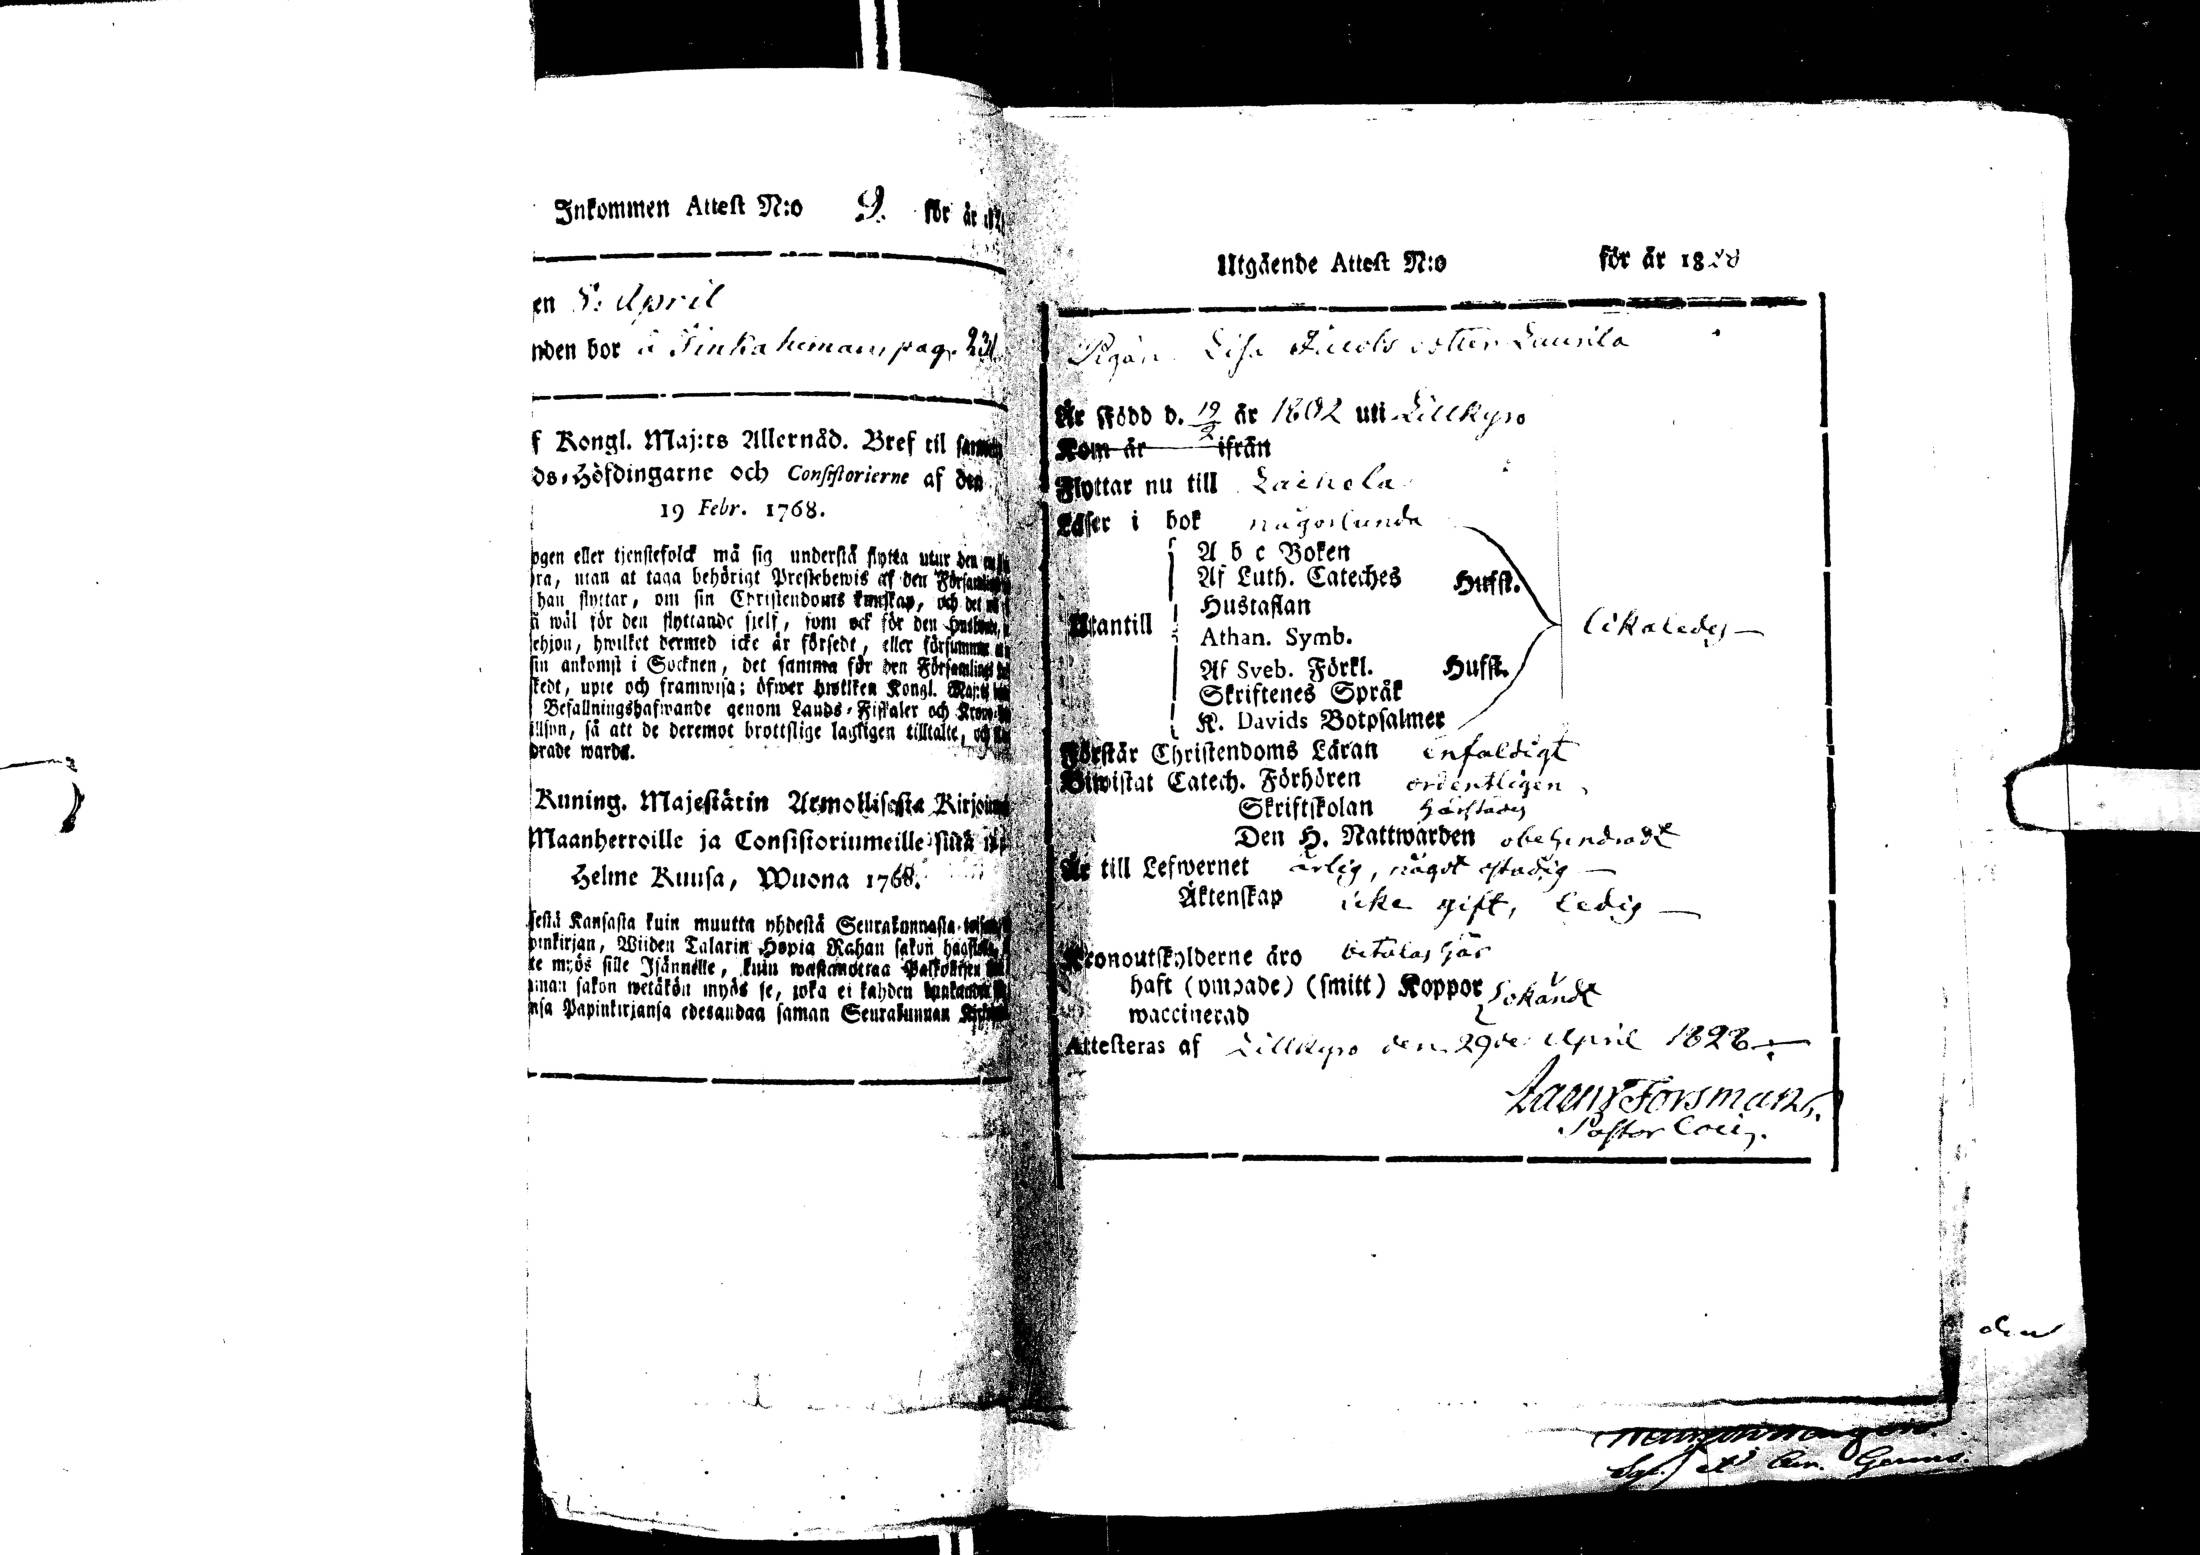 Inkommen Attest N:o 9. för år 182
en 8: April
nden bor å Finka heman, pag. 231
f Kongl. Maj:ts Allernåd. Bref til samtl
ds-Höfdingarne och Consistorierne af den
19 Febr. 1768.
ogen eller tjenstefolck må sig understå flytta utur den en
ra, utan at taga behörigt Prestebewis af den Församling
han flyttar, om sin Christendoms kunskap, och det
wäl för den flyttande sjelf, som ock för den Husbonde,
hwilket dermed icke är försedt, eller försummar
sin ankomst i Socknen, det samma för den Församlings
tedt, upte och framwisa; öfwer hwilken Kongl. Maj:ts
Befallningshafwande genom Lands-Fiskaler och Krono
så att de deremot brottslige lagligen tilltalte, och
drade warda.
Kuning. Majestätin Armollisesta Kirjoi
Maanherroille ja Consistoriumeille siitä
Helme Kuusa, Wuona 1768.
sestä Kansasta kuin muutta yhdestä Seurakunnasta toiseen
pinkirjan, Wiiden Talarin Hopia Rahan sakon haastolla,
te myös sille Isännelle, kuin wastanottaa Palkollisen
man sakon wetäkön myös se, joka ei kahden
nsa Papinkirjansa edesandaa saman Seurakunnan
Utgående Attest N:o för år 1828
Pigan Lisa Jacobs dotter Laurila
Är Född d. 19/2 år 1802 uti Lillkyro
Kom år ifrån
Flyttar nu till Laihela
Läser i bok någorlunda
A b c Boken
Af Luth. Cateches Hufst.
Hustaflan
Utantill Athan. Symb. likaledes
Af Sveb. Förkl. Hufst.
Skriftenes Språk
K. Davids Botpsalmer
Förstår Christendoms Läran enfaldigt
Biwistat Catech. Förhören ordentligen
Skriftskolan härstädes
Den H. Nattwarden obehindradt
Är till Lefwernet ärlig, något ostadig
Äktenskap icke gift, ledig
Kronoutskylderne äro betalas här
haft (ympade) (smitt) Koppor okändt
waccinerad
Attesteras af Lillkyro den 29de April 1828
Forsman
Pastor
den